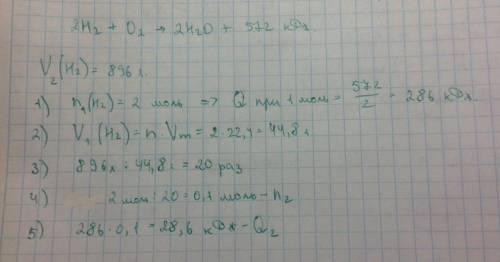 2H₂ + O₂ → 2H₂O + 572 кДж
V₂(H₂) = 896 л.
1) n₁(H₂) = 2 моль => Q при 1 моль = 572/2 = 286 кДж.
2) V₁(H₂) = n · Vm = 2 · 22,4 = 44,8 л
3) 896 л : 44,8 л = 20 раз
4) 2 моль : 20 = 0,1 моль - n₂
5) 286 · 0,1 = 28,6 кДж - Q₂